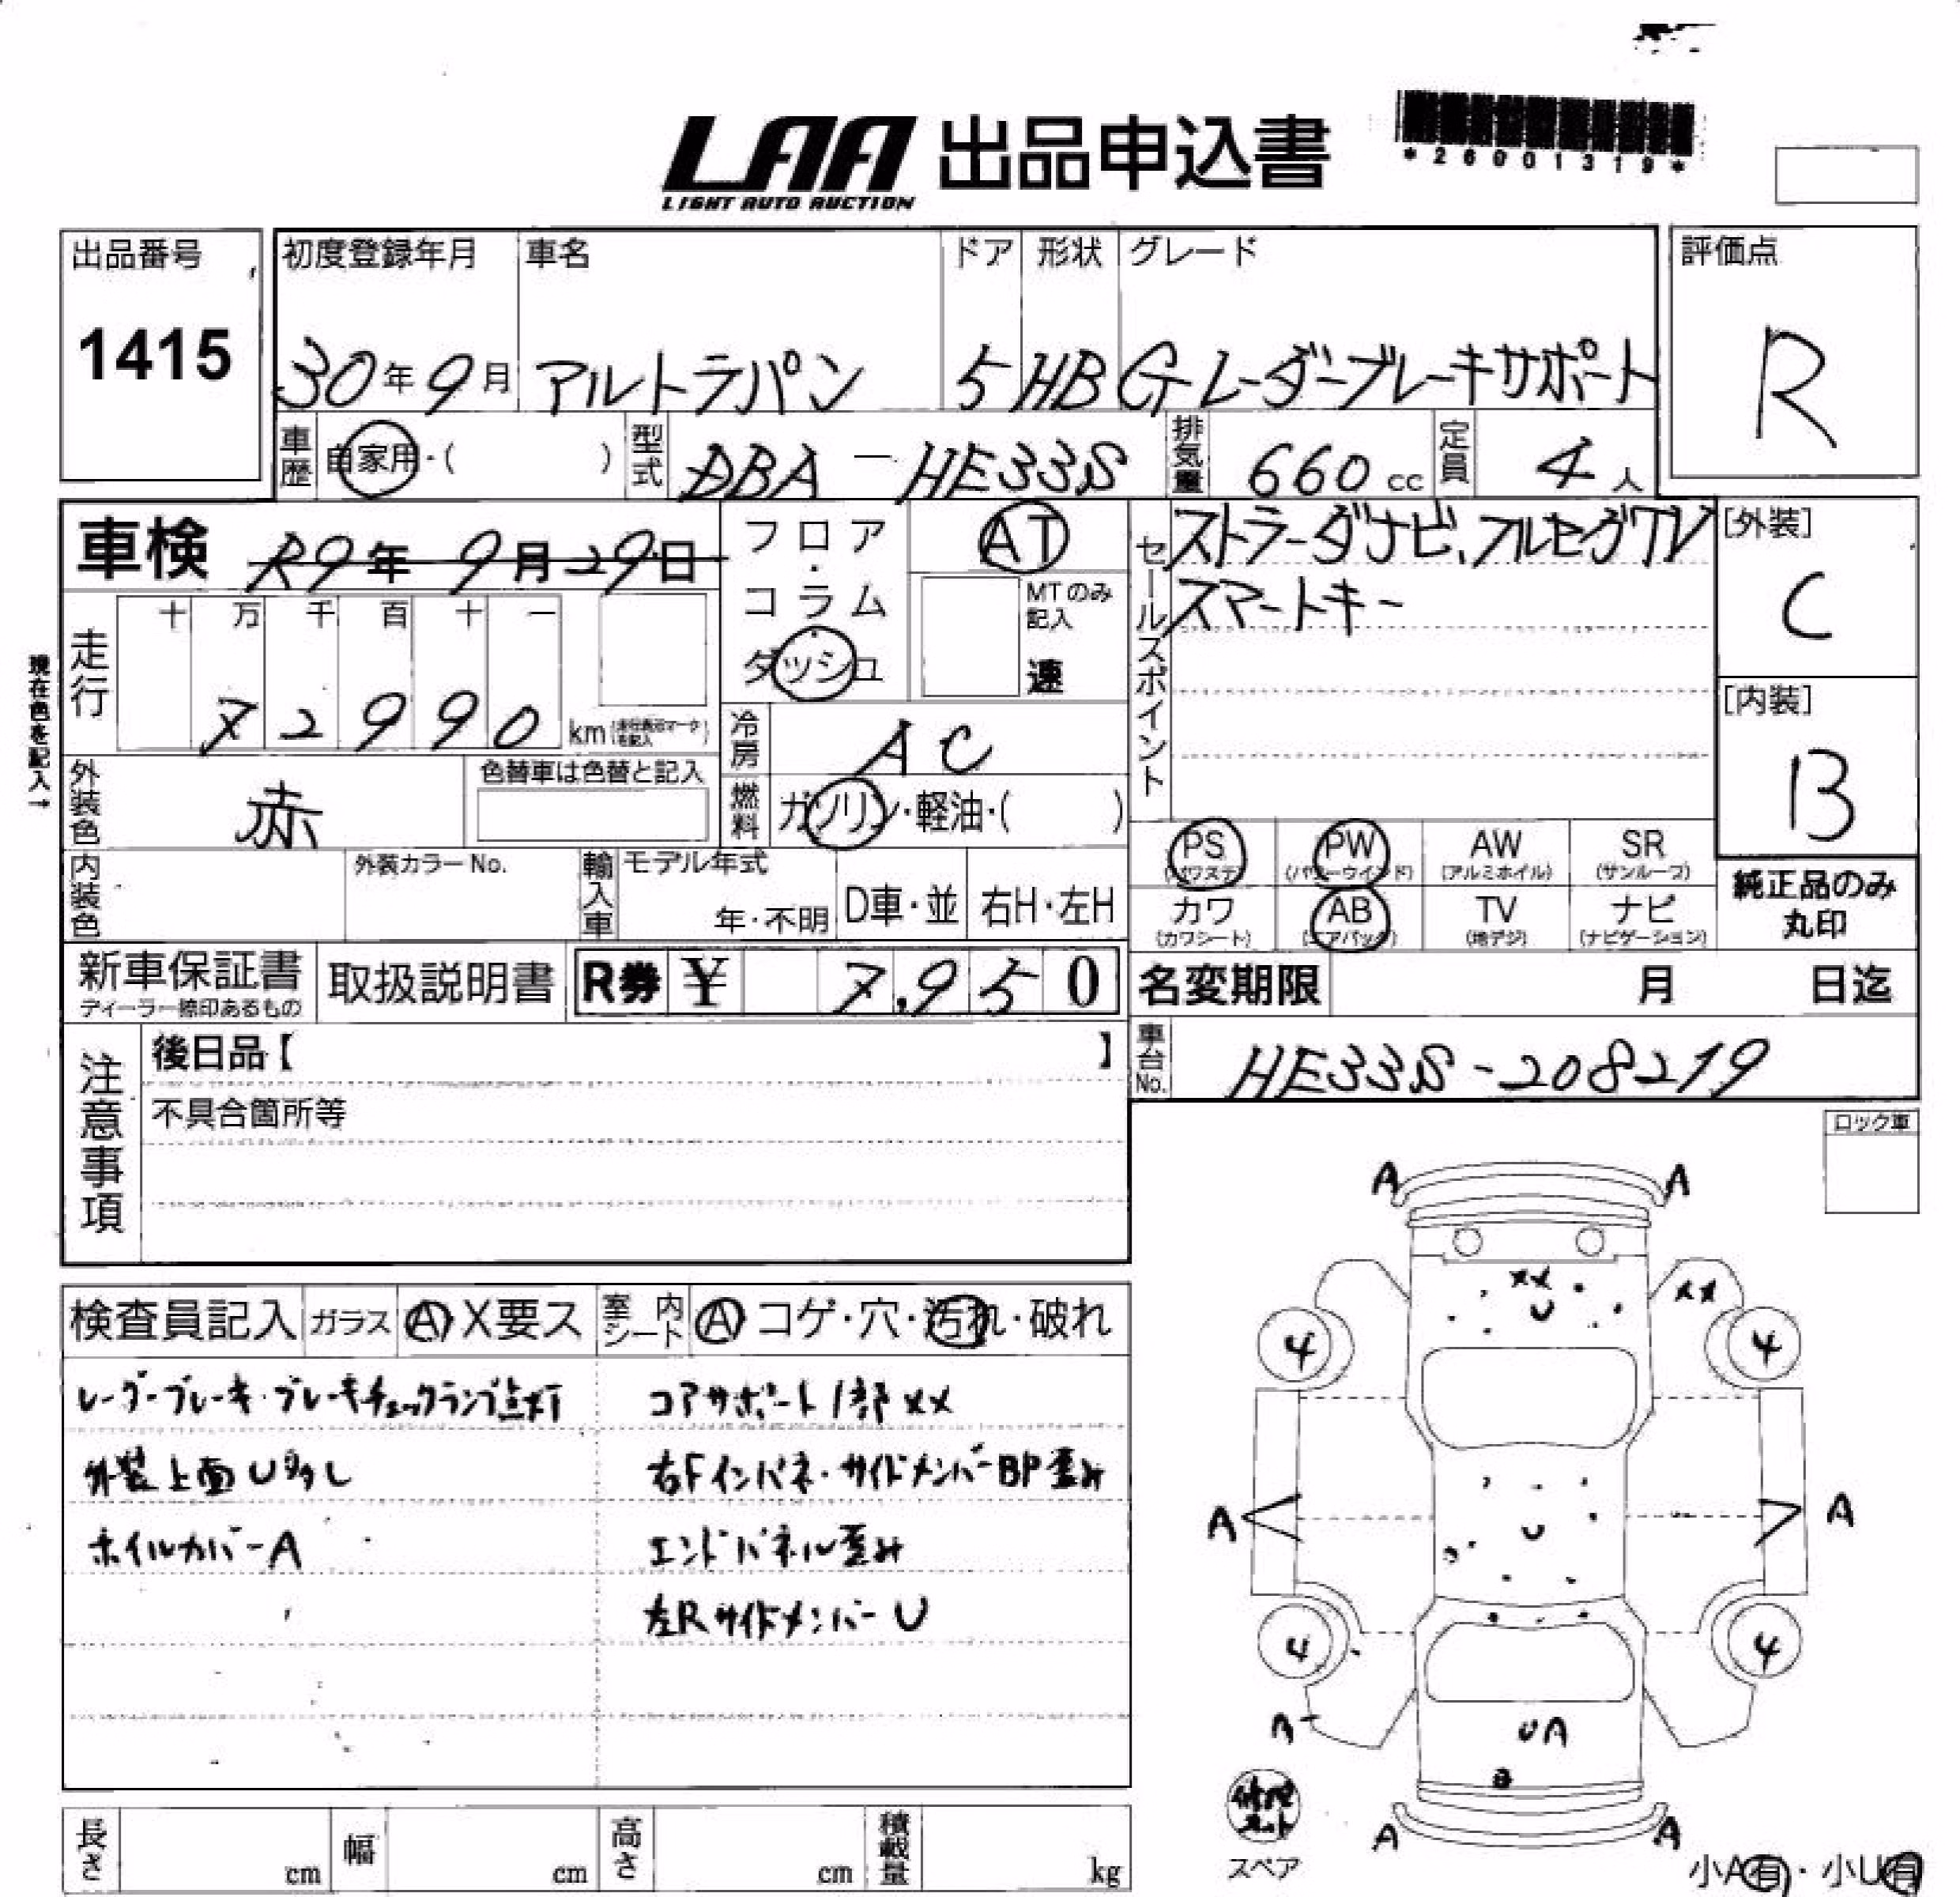 LAA 出品申込書
LIGHT AUTO AUCTION
*26001319*
出品番号
1415
初度登録年月 車名 ドア 形状 グレード
30年9月 アルトラパン 5 HB G レーダーブレーキサポート
評価点
R
車歴 自家用・( ) 型式 DBA-HE33S 排気量 660cc 定員 4人
車検 R9年9月29日
フロア・コラム・ダッシュ
AT
MTのみ記入
速
セールスポイント
ストラーダナビ、フルセグTV
スマートキー
[外装]
C
[内装]
B
現在色を記入→
走行 十 万 千 百 十 一
72990 km
冷房 AC
外装色 赤
色替車は色替と記入
燃料 ガソリン・軽油・( )
PS (パワステ) PW (パワーウインド) AW (アルミホイル) SR (サンルーフ)
カワ (カワシート) AB (エアバック) TV (地デジ) ナビ (ナビゲーション)
純正品のみ
丸印
内装色 外装カラーNo. 輸入車 モデル年式
年・不明 D車・並 右H・左H
新車保証書 取扱説明書 R券 ¥ 7,950
ディーラー捺印あるもの
名変期限 月 日迄
車台No. HE33S-208219
注意事項
後日品【 】
不具合箇所等
ロック車
検査員記入 ガラス A X要ス 室内シート A コゲ・穴・汚れ・破れ
レーダーブレーキ・ブレーキチェックランプ点灯
外装上面U多し
ホイルカバーA
コアサポート1部XX
右Fインパネ・サイドメンバーBP歪み
エンドパネル歪み
左RサイドメンバーU
A A
XX XX
U
4 4
A A
U
4 4
A
UA
A A
修理キット
スペア
小A有・小U有
長さ cm 幅 cm 高さ cm 積載量 kg